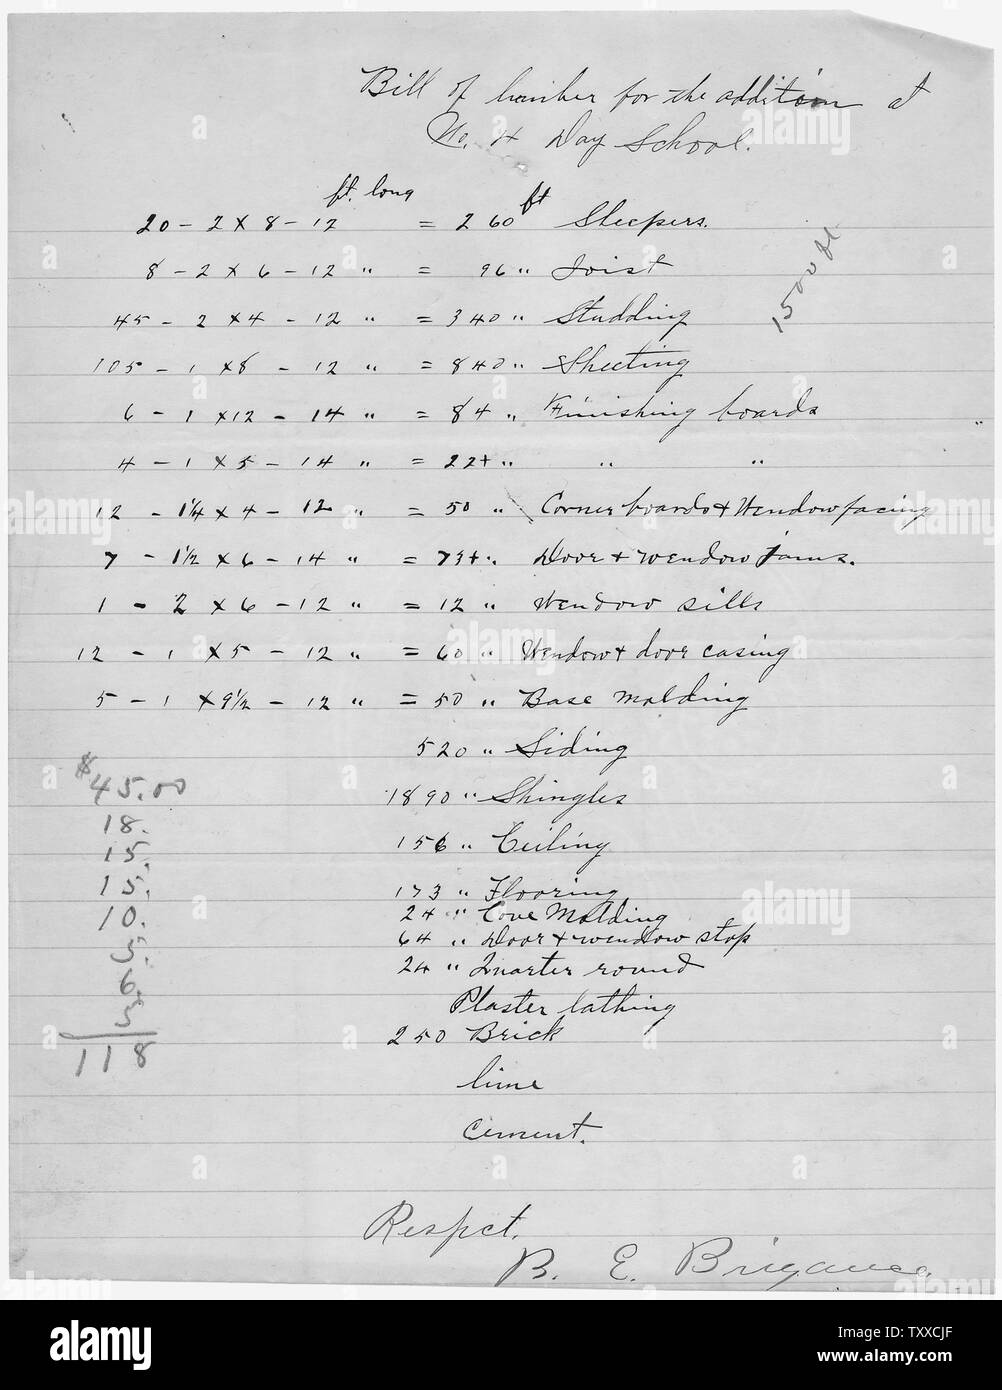 Bill of lumber for the addition at
No. 4 Day School.
ft. long
20 – 2 x 8 – 12 = 260 ft Sleepers.
8 – 2 x 6 – 12 " = 96 " Joist
45 – 2 x 4 – 12 " = 340 " Studding
1500 ft
105 – 1 x 8 – 12 " = 840 " Sheeting
6 – 1 x 12 – 14 " = 84 " Finishing boards
4 – 1 x 5 – 14 " = 22+ " " "
12 – 1¼ x 4 – 12 " = 50 " Corner boards + Wendow facing
7 – 1½ x 6 – 14 " = 73+ " Door + wendow jams.
1 – 2 x 6 – 12 " = 12 " Wendow sills
12 – 1 x 5 – 12 " = 60 " Wendow + door casing
5 – 1 x 9½ – 12 " = 50 " Base molding
520 " Siding
1890 " Shingles
156 " Ceiling
173 " Flooring
24 " Cove Molding
64 " Door + wendow stop
24 " Quarter round
Plaster lathing
250 Brick
lime
cement.
$45.00
18.
15.
15.
10.
5.
6.
3
118
Respct.
B. E. Brigance
alamy
Image ID: TXXCJF
www.alamy.com